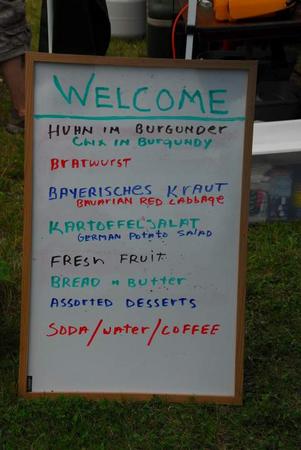 WELCOME
HUHN IM BURGUNDER
CHIX IN BURGUNDY
BRATWURST
BAYERISCHES KRAUT
BAVARIAN RED CABBAGE
KARTOFFELSALAT
GERMAN POTATO SALAD
FRESH FRUIT
BREAD n BUTTER
ASSORTED DESSERTS
SODA/WATER/COFFEE